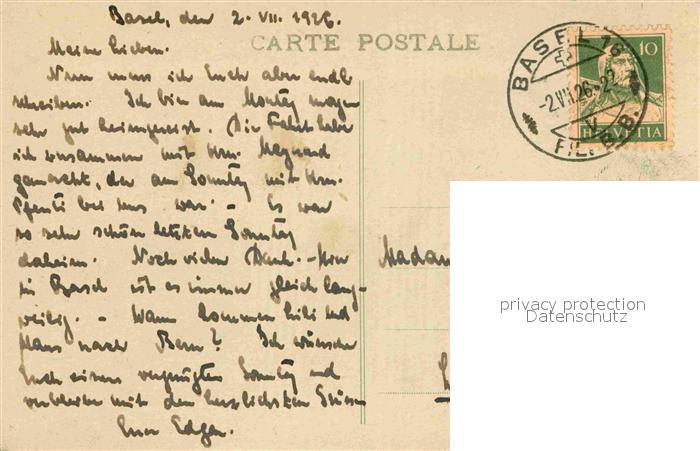 Basel, den 2. VII. 1926.
Meine Lieben.
CARTE POSTALE
Nun muss ich Euch aber endl.
schreiben. Ich bin am Montag morgen
sehr gut heimgereist. Die Fahrt habe
ich zusammen mit Hrn.
gemacht, der am Sonntag mit Hrn.
bei uns war. - Es war
so sehr schön letzten Sonntag
daheim. Noch vielen Dank. - Hier
in Basel ist es immer gleich lang-
weilig. - Wann kommen und
Hans nach Bern? Ich wünsche
Euch einen vergnügten Sonntag und
verbleibe mit den herzlichsten Grüssen
Euer Edgar.
BASEL 16
-2.VII.26.-22
FIL. S.B.B.
10
HELVETIA
Madam
privacy protection
Datenschutz